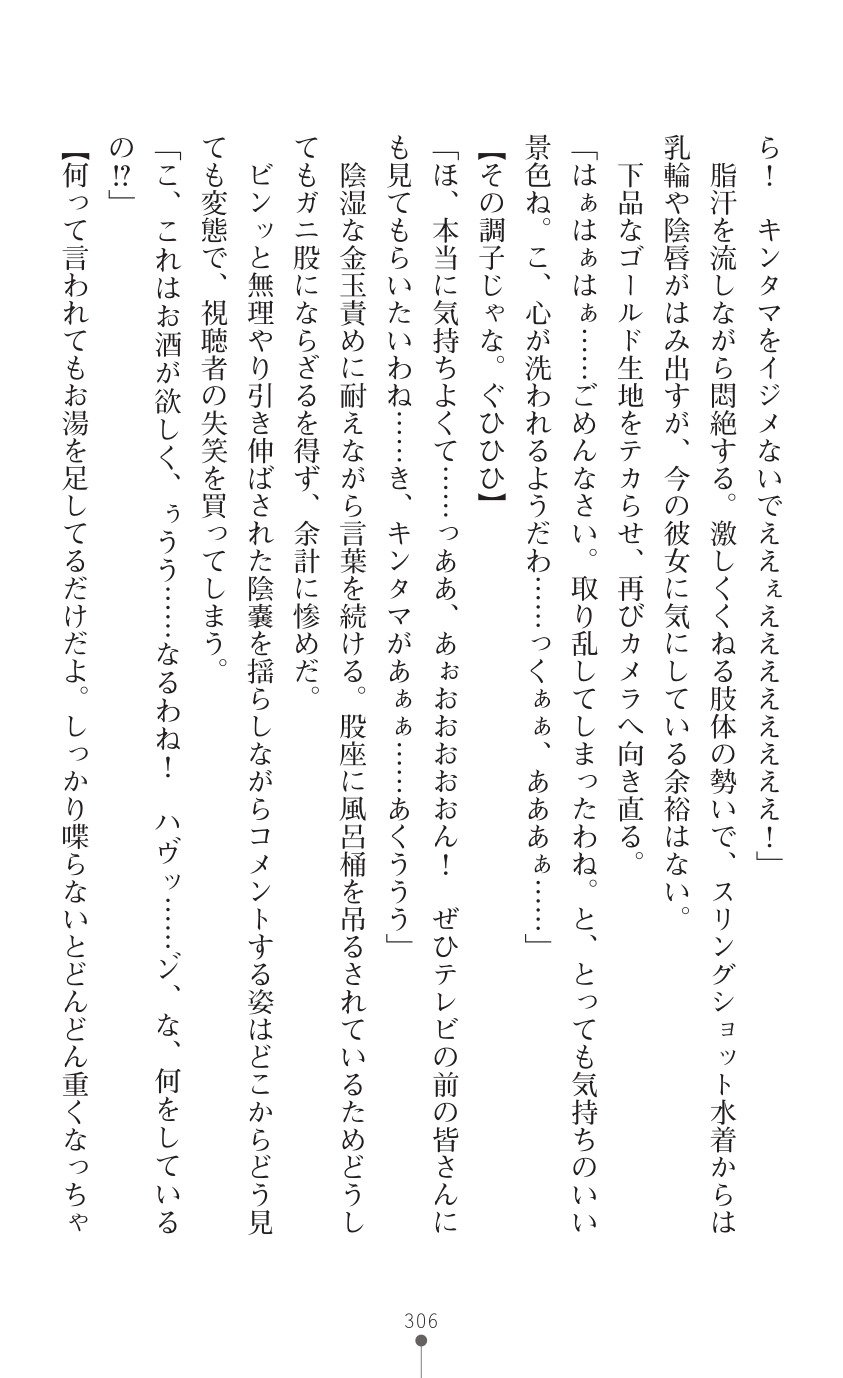 ら！　キンタマをイジメないでええぇえええええええ！」
　脂汗を流しながら悶絶する。激しくくねる肢体の勢いで、スリングショット水着からは
乳輪や陰唇がはみ出すが、今の彼女に気にしている余裕はない。
　下品なゴールド生地をテカらせ、再びカメラへ向き直る。
「はぁはぁはぁ……ごめんなさい。取り乱してしまったわね。と、とっても気持ちのいい
景色ね。こ、心が洗われるようだわ……っくぁぁ、あああぁ……」
【その調子じゃな。ぐひひひ】
「ほ、本当に気持ちよくて……っああ、あぉおおおおおん！　ぜひテレビの前の皆さんに
も見てもらいたいわね……き、キンタマがあぁぁ……あくううう」
　陰湿な金玉責めに耐えながら言葉を続ける。股座に風呂桶を吊るされているためどうし
てもガニ股にならざるを得ず、余計に惨めだ。
　ビンッと無理やり引き伸ばされた陰嚢を揺らしながらコメントする姿はどこからどう見
ても変態で、視聴者の失笑を買ってしまう。
「こ、これはお酒が欲しく、ぅうう……なるわね！　ハヴッ……ジ、な、何をしている
の!?」
【何って言われてもお湯を足してるだけだよ。しっかり喋らないとどんどん重くなっちゃ
306